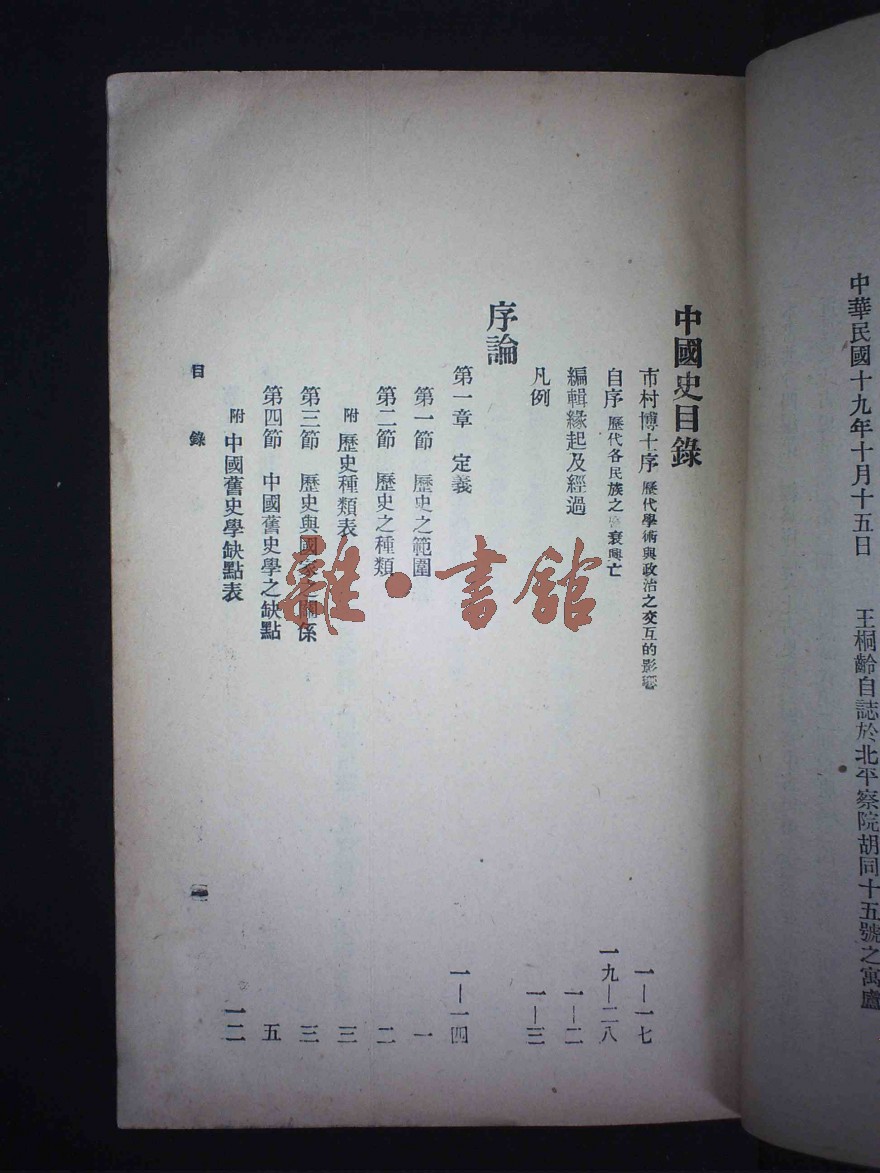 中華民國十九年十月十五日 王桐齡自誌於北平察院胡同十五號之寓廬
中國史目錄
市村博士序 歷代學術與政治之交互的影響 一—一七
自序 歷代各民族之 衰興亡 一九—二八
編輯緣起及經過 一—二
凡例 一—三
序論
第一章 定義 一—一四
第一節 歷史之範圍 一
第二節 歷史之種類 二
附 歷史種類表 三
第三節 歷史與國家之關係 三
第四節 中國舊史學之缺點 五
附 中國舊史學缺點表 一二
目錄
雜·書館